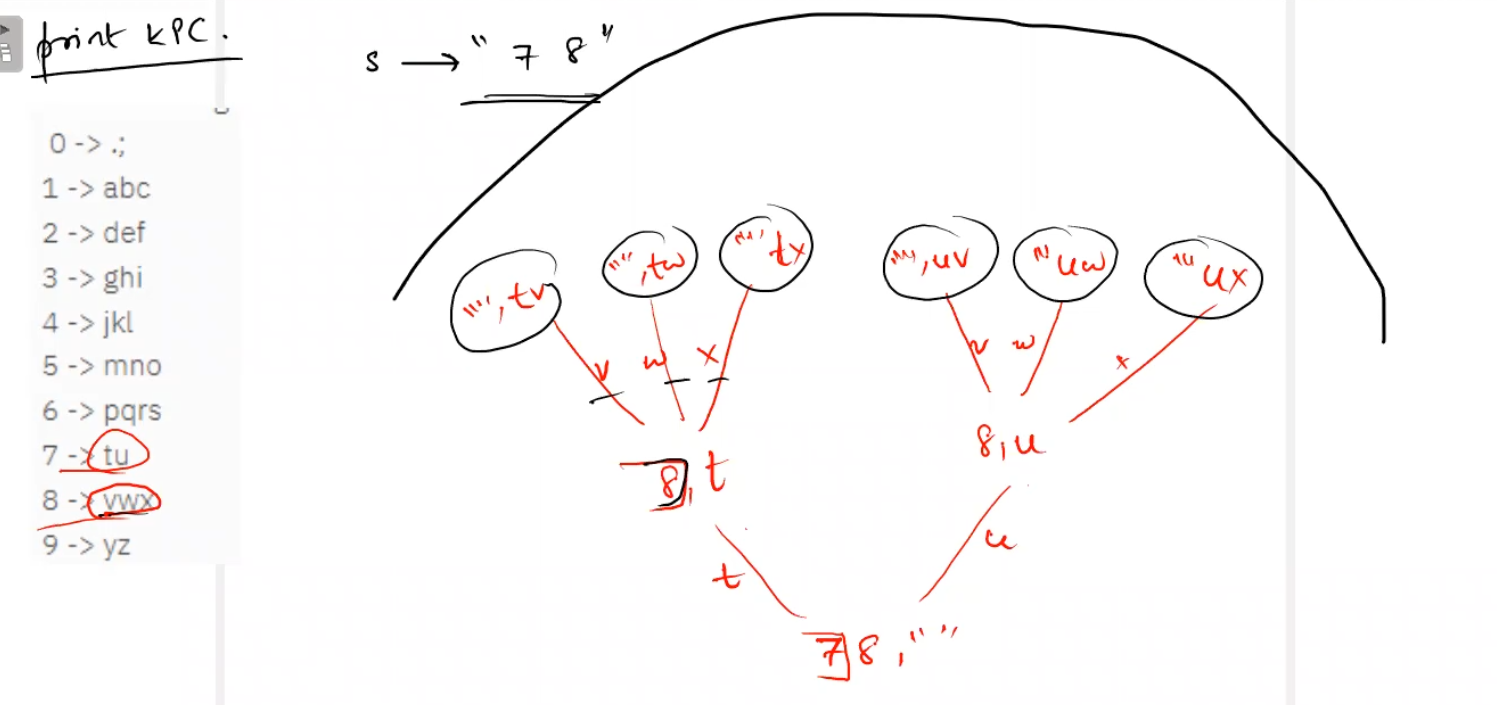 print KPC.
s → " 7 8 "
0 -> .;
1 -> abc
2 -> def
3 -> ghi
4 -> jkl
5 -> mno
6 -> pqrs
7 -> tu
8 -> vwx
9 -> yz
"", tv
"", tw
"", tx
"", uv
"" uw
"" ux
v w x
v w x
8, t
8, u
t
u
78, " "